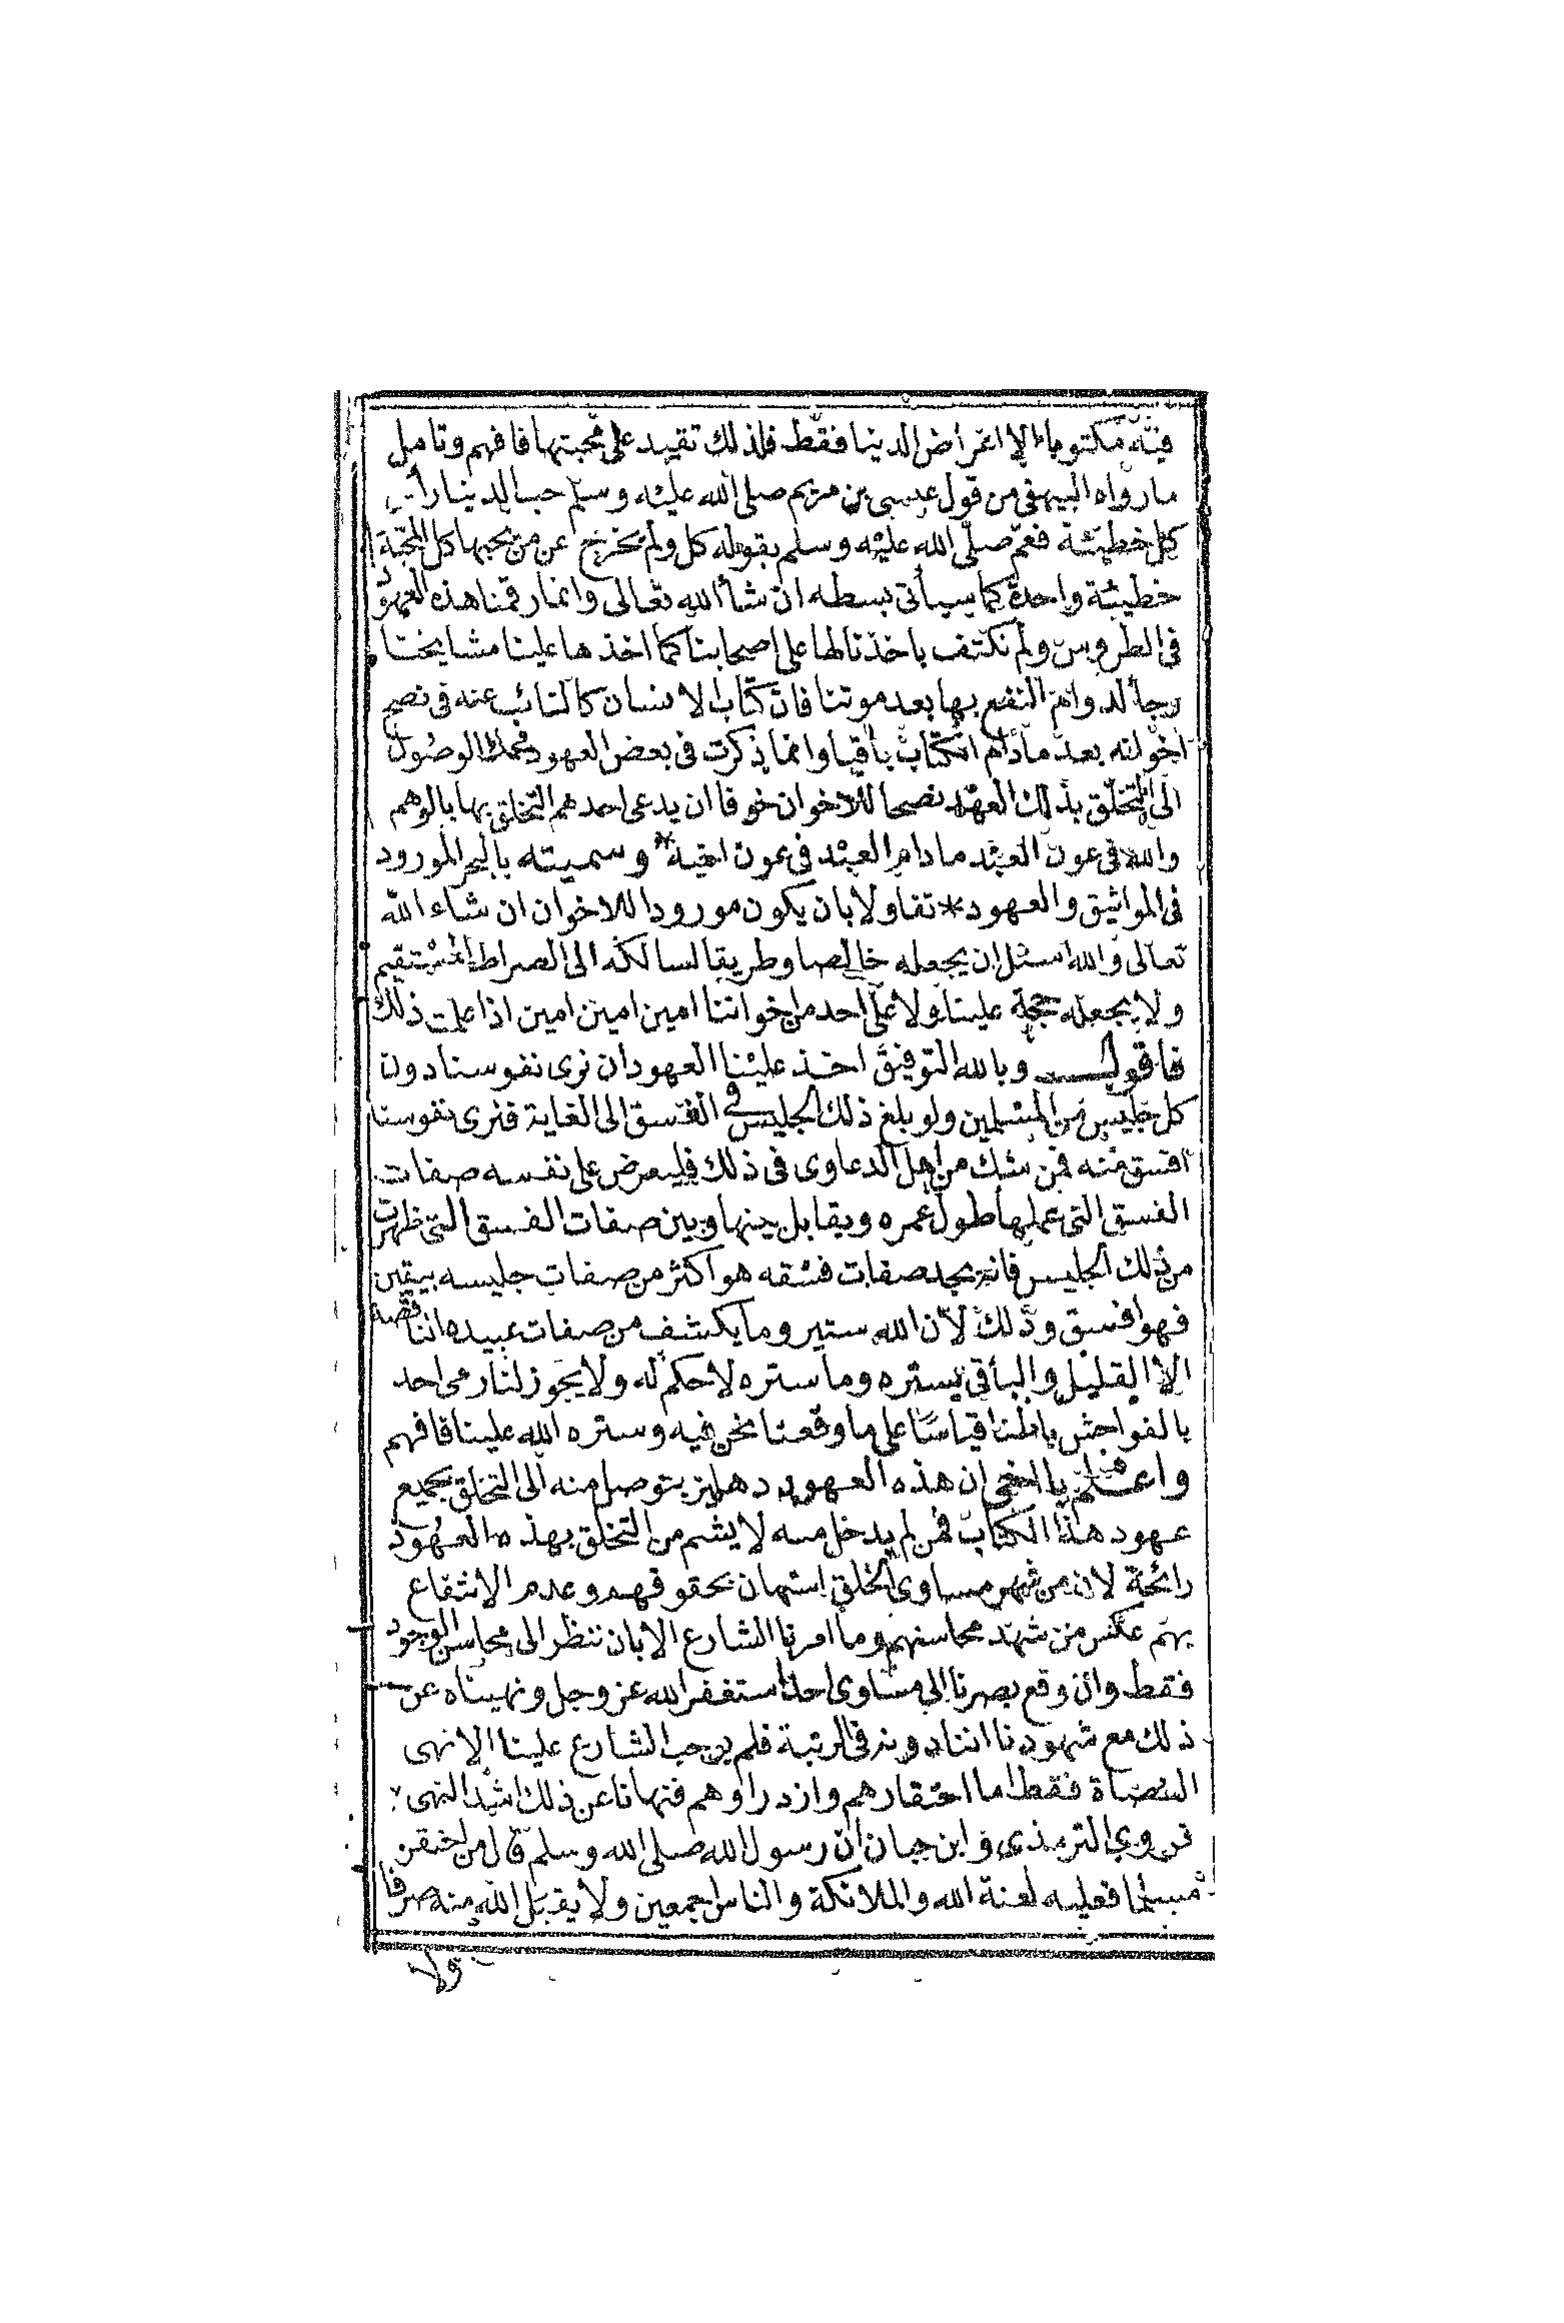 فيه مكتوبا الا اغراض الدنيا فقط فلذلك تقيد على محبتها فافهم وتامل
ما رواه البيهقى من قول عيسى بن مريم صلى الله عليه وسلم حب الدنيا رأس
كل خطيئة فعم صلى الله عليه وسلم بقوله كل ولم يخرج عن من يحبها كل المحبة
خطيئة واحدة كما سيأتى بسطه ان شأ الله تعالى وانما رقمنا هذه العهود
فى الطروس ولم نكتف باخذنا لها على اصحابنا كما اخذها علينا مشايخنا
رجأ لدوام النفع بها بعد موتنا فان كتاب الانسان كالنائب عنه فى نصح
اخوانه بعد مادام الكتاب باقيا وانما ذكرت فى بعض العهود محك الوصول
الى التخلق بذلك العهد نصحا للاخوان خوفا ان يدعى احدهم التخلق بها بالوهم
والله فى عون العبد ما دام العبد فى عون اخيه * وسميته بالبحر المورود
فى المواثيق والعهود * تفاولا بان يكون مورودا للاخوان ان شاء الله
تعالى والله اسئل ان يجعله خالصا وطريقا لسالكه الى الصراط المستقيم
ولا يجعله حجة علينا ولا على احد من اخواننا امين امين امين اذا علمت ذلك
فاقول وبالله التوفيق اخذ علينا العهود ان نرى نفوسنا دون
كل جليس من المسلمين ولو بلغ ذلك الجليس فى الفسق الى الغاية فنرى نفوسنا
افسق منه فمن شك من اهل الدعاوى فى ذلك فليعرض على نفسه صفات
الفسق التى عملها طول عمره ويقابل بينها وبين صفات الفسق التى ظهرت
من ذلك الجليس فانه يجد صفات فسقه هو اكثر من صفات جليسه بيقين
فهو افسق وذلك لان الله ستير وما يكشف من صفات عبيده الناقصة
الا القليل والباقى يستره وما ستره لا حكم له ولا يجوز لنا رمى احد
بالفواحش باطنا قياسا على ما وقعنا نحن فيه وستره الله علينا فافهم
واعلم يا اخى ان هذه العهود دهليز يتوصل منه الى التخلق بجميع
عهود هذا الكتاب فمن لم يدخل منه لا يشم من التخلق بهذه العهود
رائحة لان من شهد مساوى الخلق استهان بحقوقهم وعدم الانتفاع
بهم عكس من شهد محاسنهم وما امرنا الشارع الا بان ننظر الى محاسن الوجود
فقط وان وقع بصرنا الى مساوى احد استغفر الله عز وجل ونهيناه عن
ذلك مع شهودنا اننا دونه فى الرتبة فلم يوجب الشارع علينا الا نهى
العصاة فقط اما احتقارهم وازدراوهم فنهانا عن ذلك اشد النهى
وروى الترمذى وابن حبان ان رسول الله صلى الله وسلم قال من احتقر
مسلما فعليه لعنة الله والملائكة والناس اجمعين ولا يقبل الله منه صرفا
ولا